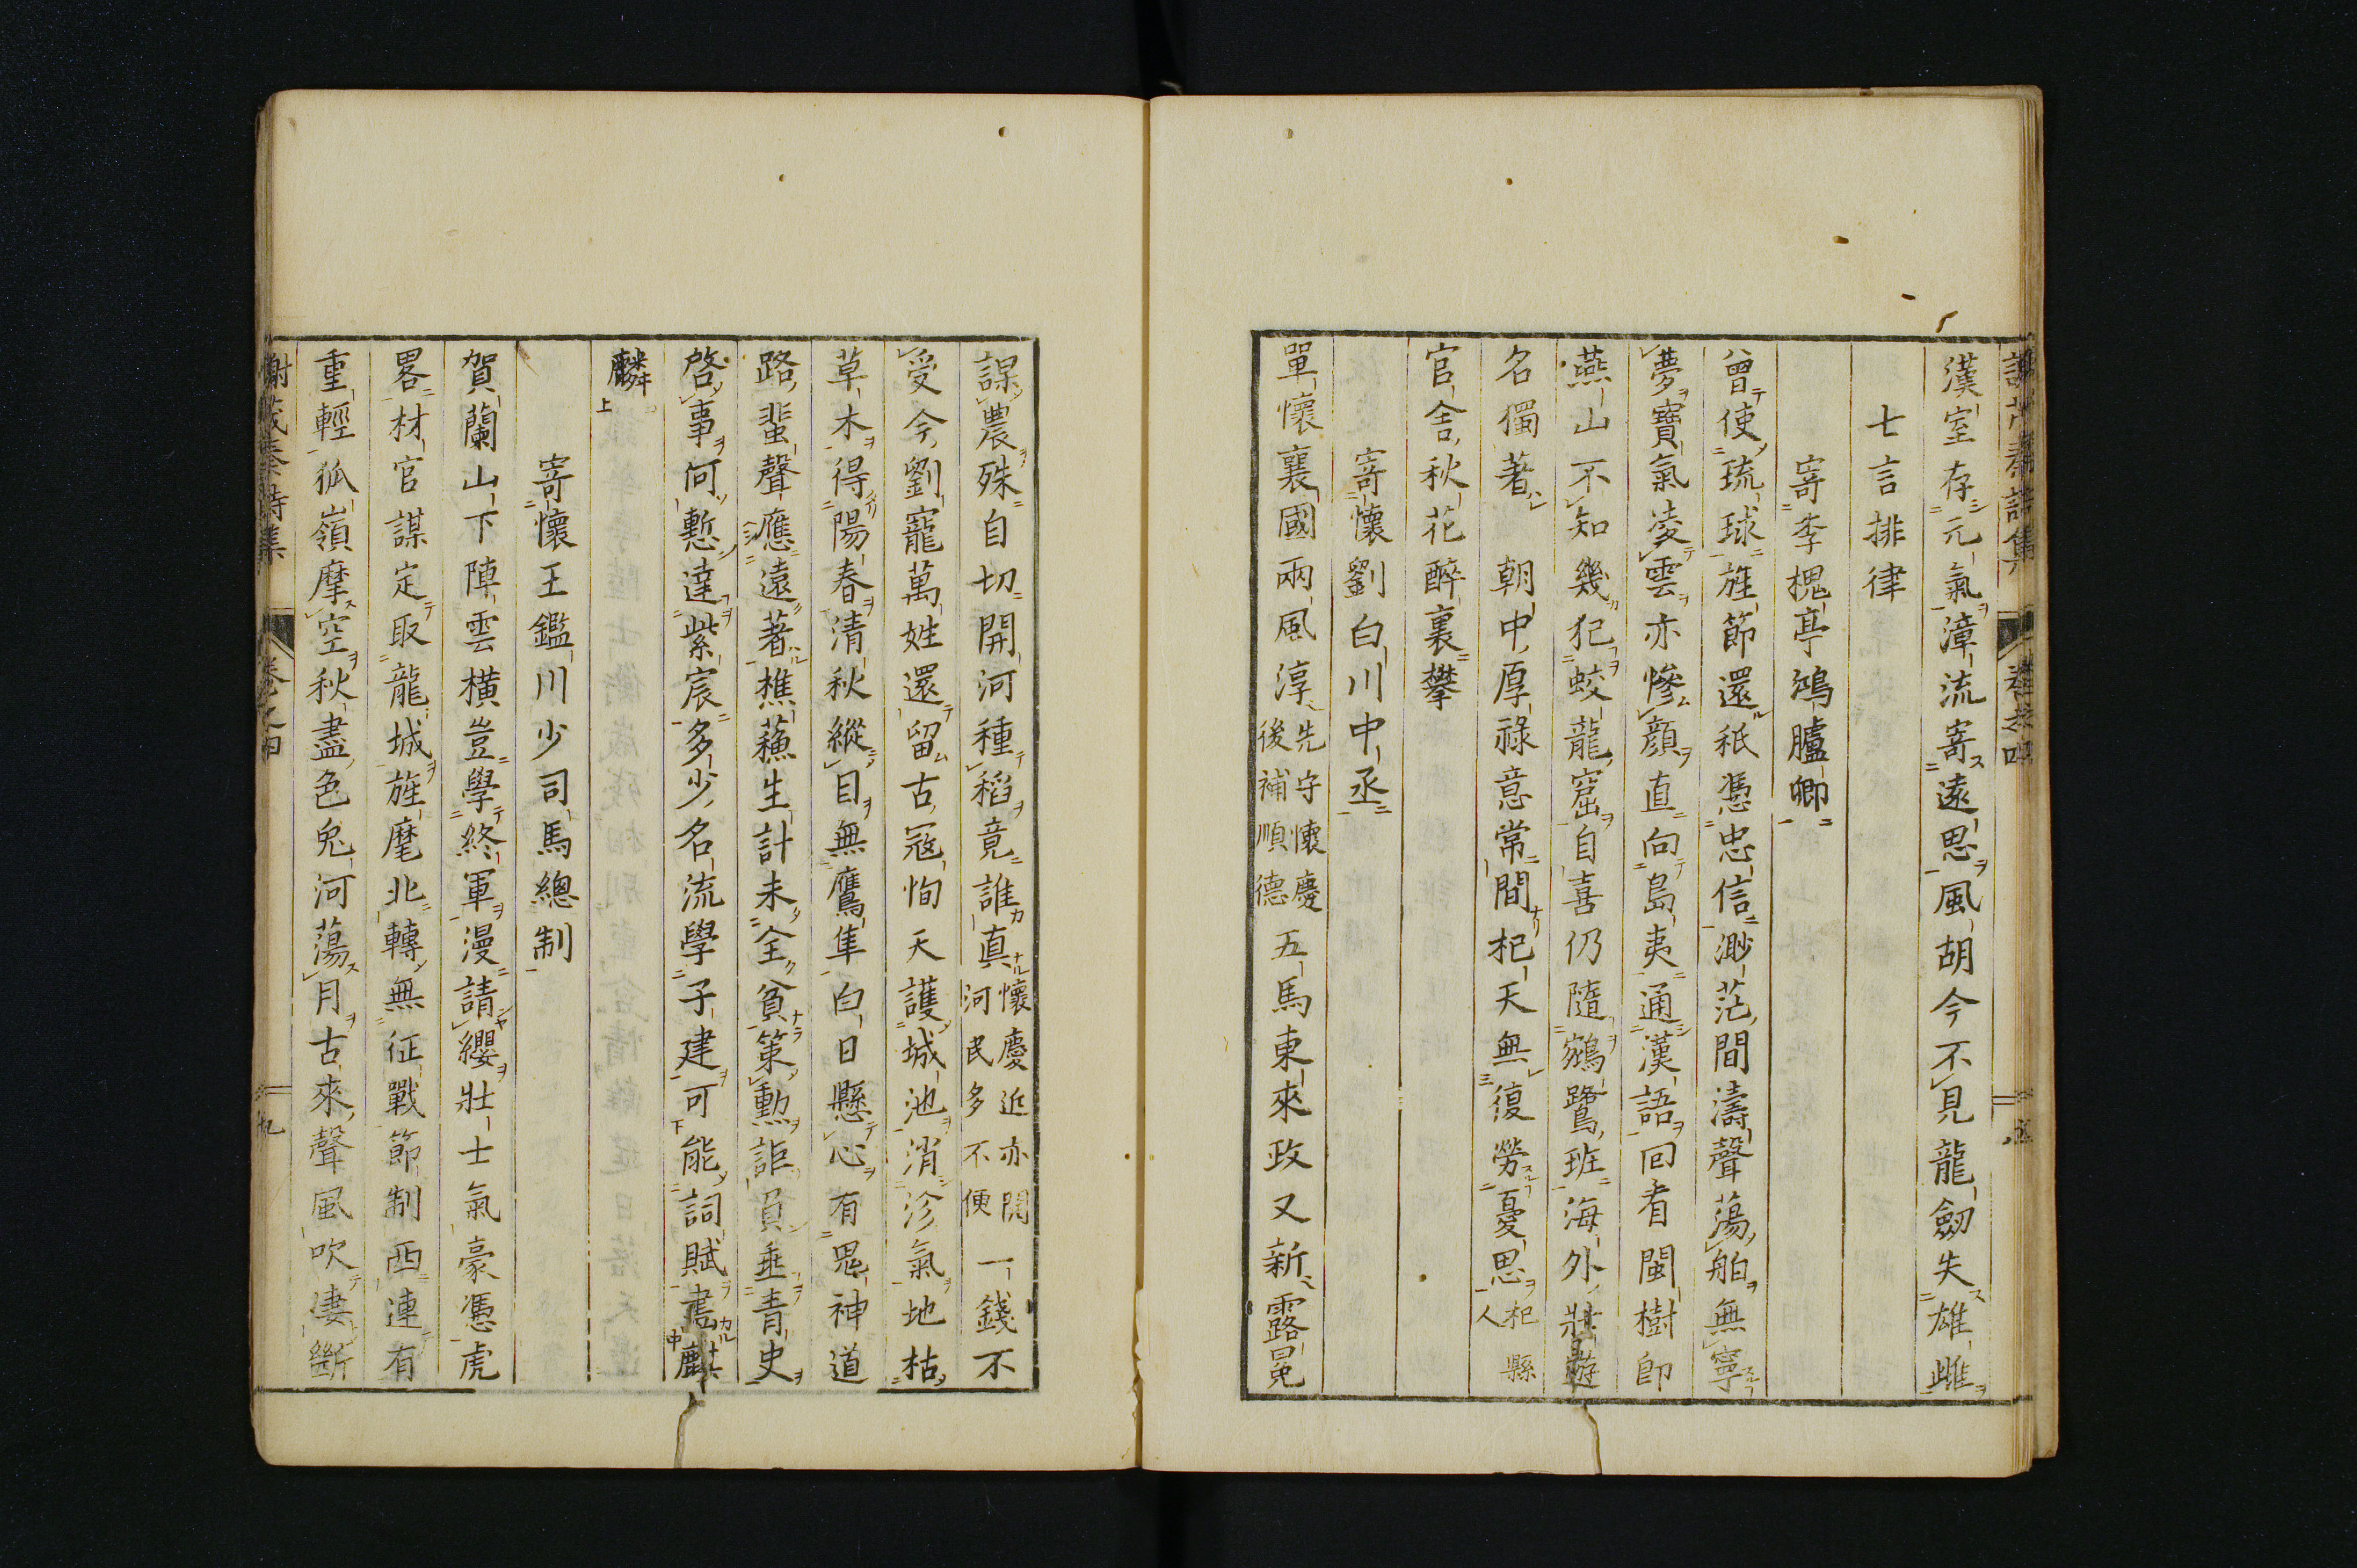 漢室存元氣漳流寄遠思風胡今不見龍劒失雄雌
七言排律
寄李槐亭鴻臚卿
曾使琉球旌節還秖憑忠信渺茫間濤聲蕩舶無寧
夢寶氣凌雲亦慘顔直向島夷通漢語回看閩樹即
燕山不知幾犯蛟龍窟自喜仍隨鵷鷺班海外壯遊
名獨著朝中厚祿意常間杞天無復勞憂思杞縣人
官舍秋花醉裏攀
寄懷劉白川中丞
單懷襄國兩風淳先守懷慶後補順德五馬東來政又新露冕
謀農殊自切開河種稻竟誰真懷慶近亦開河民多不便一錢不
受今劉寵萬姓還留古寇恂天護城池消沴氣地枯
草木得陽春清秋縱目無鷹隼白日懸心有鬼神道
路蜚聲應遠著樵蘓生計未全貧策勲詎負垂青史
啓事何慙達紫宸多少名流學子建可能詞賦畵麒
麟
寄懷王鑑川少司馬總制
賀蘭山下陣雲橫豈學終軍漫請纓壯士氣豪憑虎
畧材官謀定取龍城旌麾北轉無征戰節制西連有
重輕狐嶺摩空秋盡色兔河蕩月古來聲風吹悽斷
謝茂秦詩集 卷之四 九